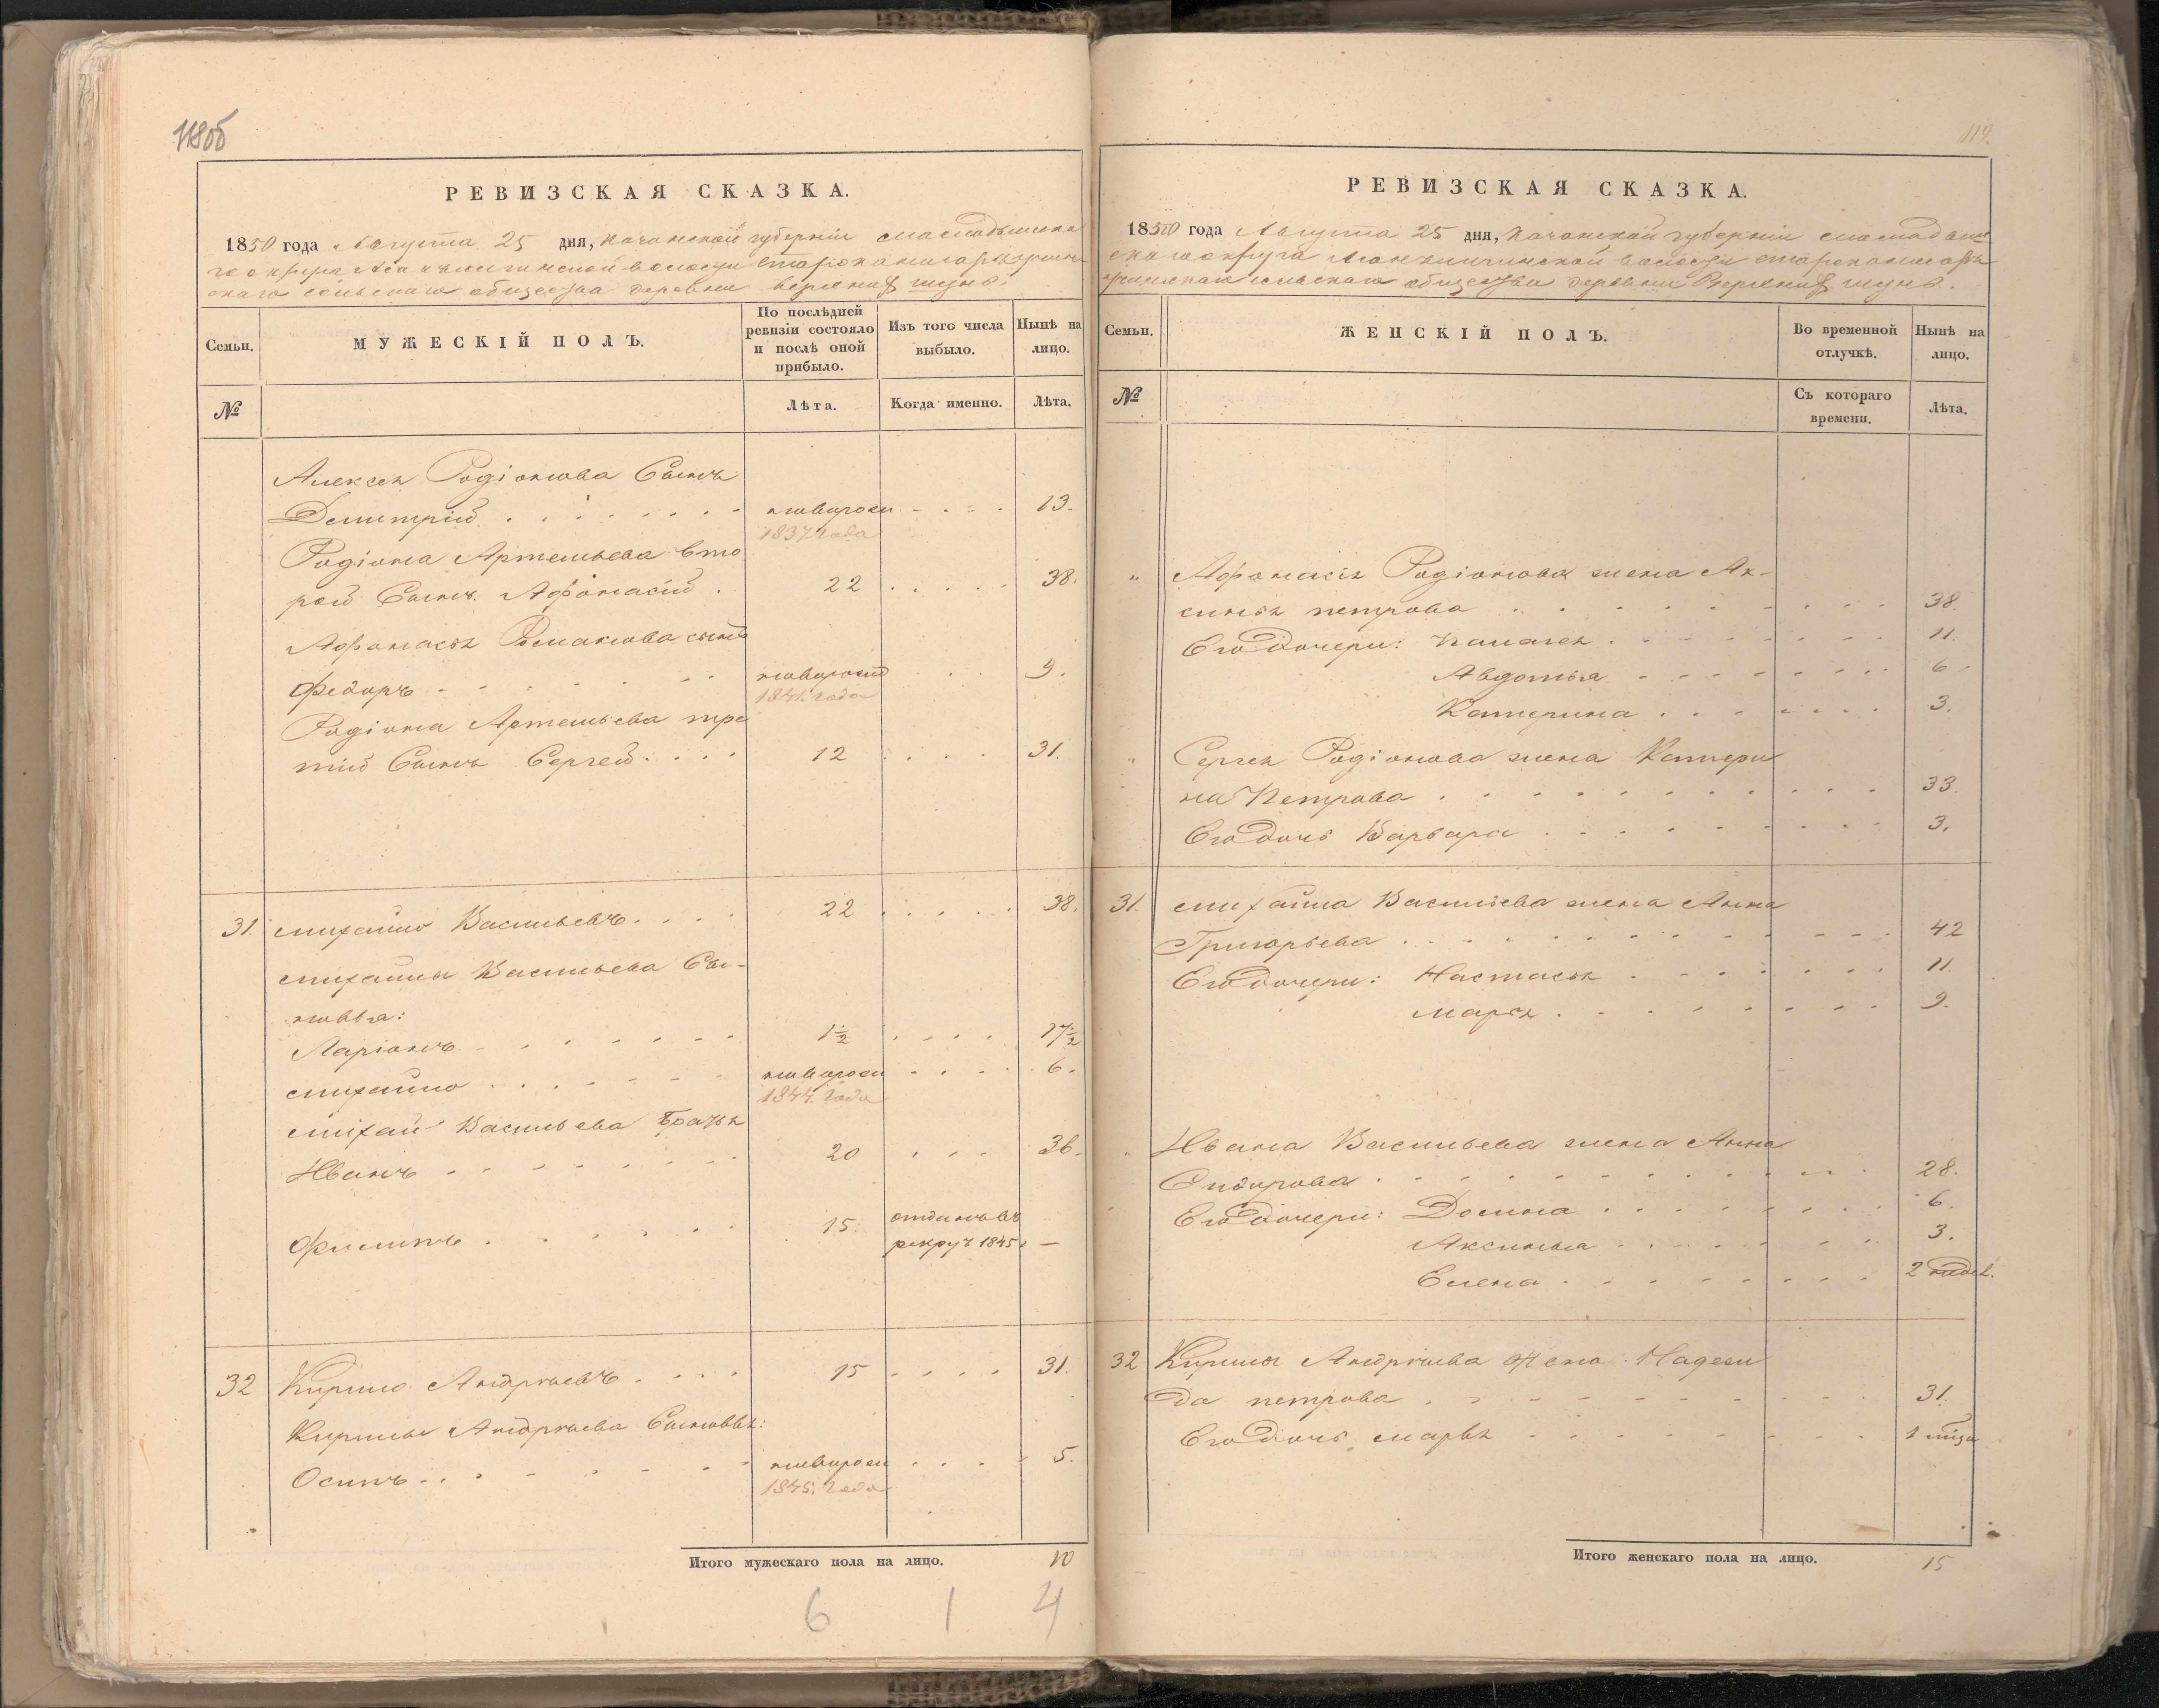 118об
РЕВИЗСКАЯ СКАЗКА.
1850 года Августа 25 дня, Казанской губернiи Мамадышска
го округа волости
скаго сельскаго общества деревни Верхний Шунь.
Семьи.
МУЖЕСКIЙ ПОЛЪ.
По послѣдней ревизiи состояло и послѣ оной прибыло.
Изъ того числа выбыло.
Нынѣ на лицо.
№
Лѣта.
Когда именно.
Лѣта.
Алексея Родiонова Сынъ
Демитрiй новорожд 13.
1837. года
Родiона Артемьева вто
рой Сынъ Афонасiй 22 38.
Афонасья Романова сынъ
Федоръ новорожд 9.
1841. года
Родiона Артемьева тре
тiй Сынъ Сергей 12 31.
31. Михайло Васильевъ 22 38.
Михайлы Васильева Сы-
новья:
Ларiонъ 1½ 17½
Михайло новорожд 6.
1844. года
Михай Васильева Братья
Иванъ 20 36.
Филипъ 15. отданъ въ
рекрут 1845 —
32 Кирило Андрѣевъ 15 31.
Кирилы Андрѣева Сыновья:
Осипъ новорожд 5.
1845. года
Итого мужескаго пола на лицо. 10
6 1 4
119.
РЕВИЗСКАЯ СКАЗКА.
1850 года Августа 25 дня, Казанской губернiи Мамадыш
скаго округа волости
сельскаго общества деревни Верхний Шунь.
Семьи.
ЖЕНСКIЙ ПОЛЪ.
Во временной отлучкѣ.
Нынѣ на лицо.
№
Съ котораго времени.
Лѣта.
" Афонасiя Родiонова жена Ак-
синья петрова 38.
Его Дочери: Палагея 11.
Авдотья 6.
Катерина 3.
" Сергея Родiонова жена Катери
на Петрова 33.
Его Дочь Варвара 3.
31. Михайла Васильева жена Анна
Григорьева 42
Его Дочери: Настасья 11.
Марья 9.
" Ивана Васильева жена Анна
Сидорова 28.
Его Дочери: Домна 6.
Аксинья 3.
Елена 2 недел.
32 Кирилы Андрѣева Жена Надеж
да петрова 31.
Его Дочь Марья 1 мѣся
Итого женскаго пола на лицо. 15